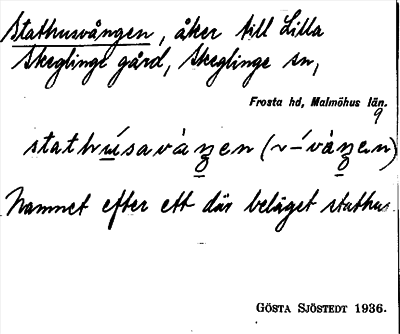 Stathusvången, åker till Lilla
Skeglinge gård, Skeglinge sn,
Frosta hd, Malmöhus län.
9
stathúsavàŋen (~–́vàŋen)
Namnet efter ett där beläget stathus.
GÖSTA SJÖSTEDT 1936.